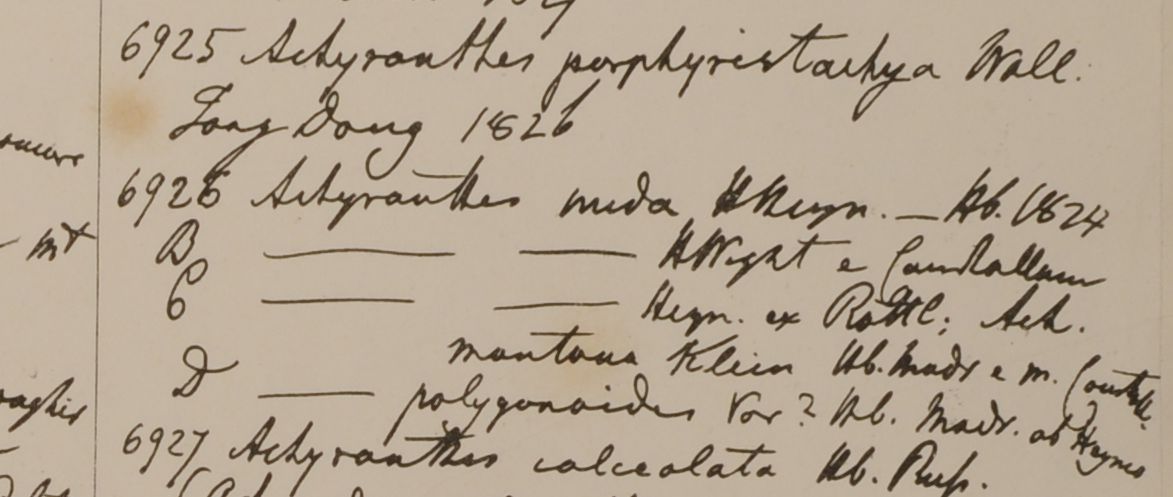 6925 Achyranthes porphyristachya Wall.
Tong Dong 1826
6926 Achyranthes nuda H Heyn. — Hb. 1824
B ——— ——— H Wight e Courtallum
C ——— ——— Heyn. ex Rottl; Ach.
montana Klein Hb. Madr e m. Courtall.
D ——— polygonoides Var? Hb. Madr. ab Heyneo
6927 Achyranthes calceolata Hb. Russ.